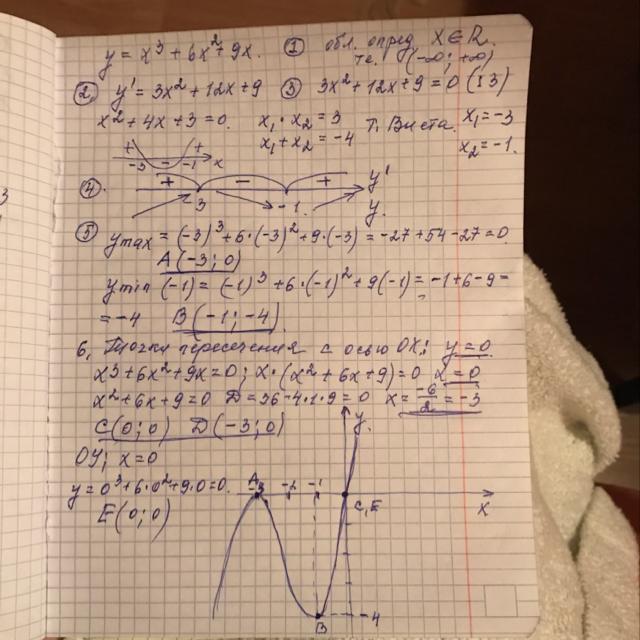 y = x³ + 6x² + 9x. ① обл. опред. X∈R.
т.е. (-∞; +∞)
② y' = 3x² + 12x + 9 ③ 3x² + 12x + 9 = 0 (:3)
x² + 4x + 3 = 0. x₁ · x₂ = 3 Т. Виета. x₁ = -3
x₁ + x₂ = -4 x₂ = -1.
+ - + x
-3 -1
④ + - + y'
3 -1 y
⑤ ymax = (-3)³ + 6·(-3)² + 9·(-3) = -27 + 54 - 27 = 0.
A(-3; 0)
ymin (-1) = (-1)³ + 6·(-1)² + 9(-1) = -1 + 6 - 9 =
= -4 B(-1; -4)
6, Точки пересечения с осью OX: y = 0
x³ + 6x² + 9x = 0; x·(x² + 6x + 9) = 0 x = 0
x² + 6x + 9 = 0 D = 36 - 4·1·9 = 0 x = -6/2 = -3
C(0; 0) D(-3; 0)
OY; x = 0
y = 0³ + 6·0² + 9·0 = 0.
E(0; 0)
y
A -2 -1
C, E X
-4
B